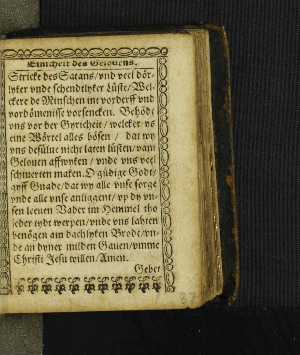 Einicheit des Gelouens.
Stricke des Satans/ vnd veel dör-
lyker vnde schendtlyker Lüste/ Wel-
ckere de Minschen int vorderff vnd
vordömenisse vorsencken. Behöde
vns vor der Gyricheit/ welcker ys
eine Wörtel alles bösen/ dat wy
vns desülue nicht laten lüsten/ vam
Gelouen affwyken/ vnde vns veel
schmerten maken. O güdige Godt/
giff Gnade/ dat wy alle vnse sorge
vnde alle vnse anliggent/ vp dy vn-
sen leeuen Vader im Hemmel tho
ieder tydt werpen/ vnde vns lahten
benögen am dachlyken Brode/ vn-
de an dyner milden Gauen/ vmme
Christi Jesu willen/ Amen.
Gebet